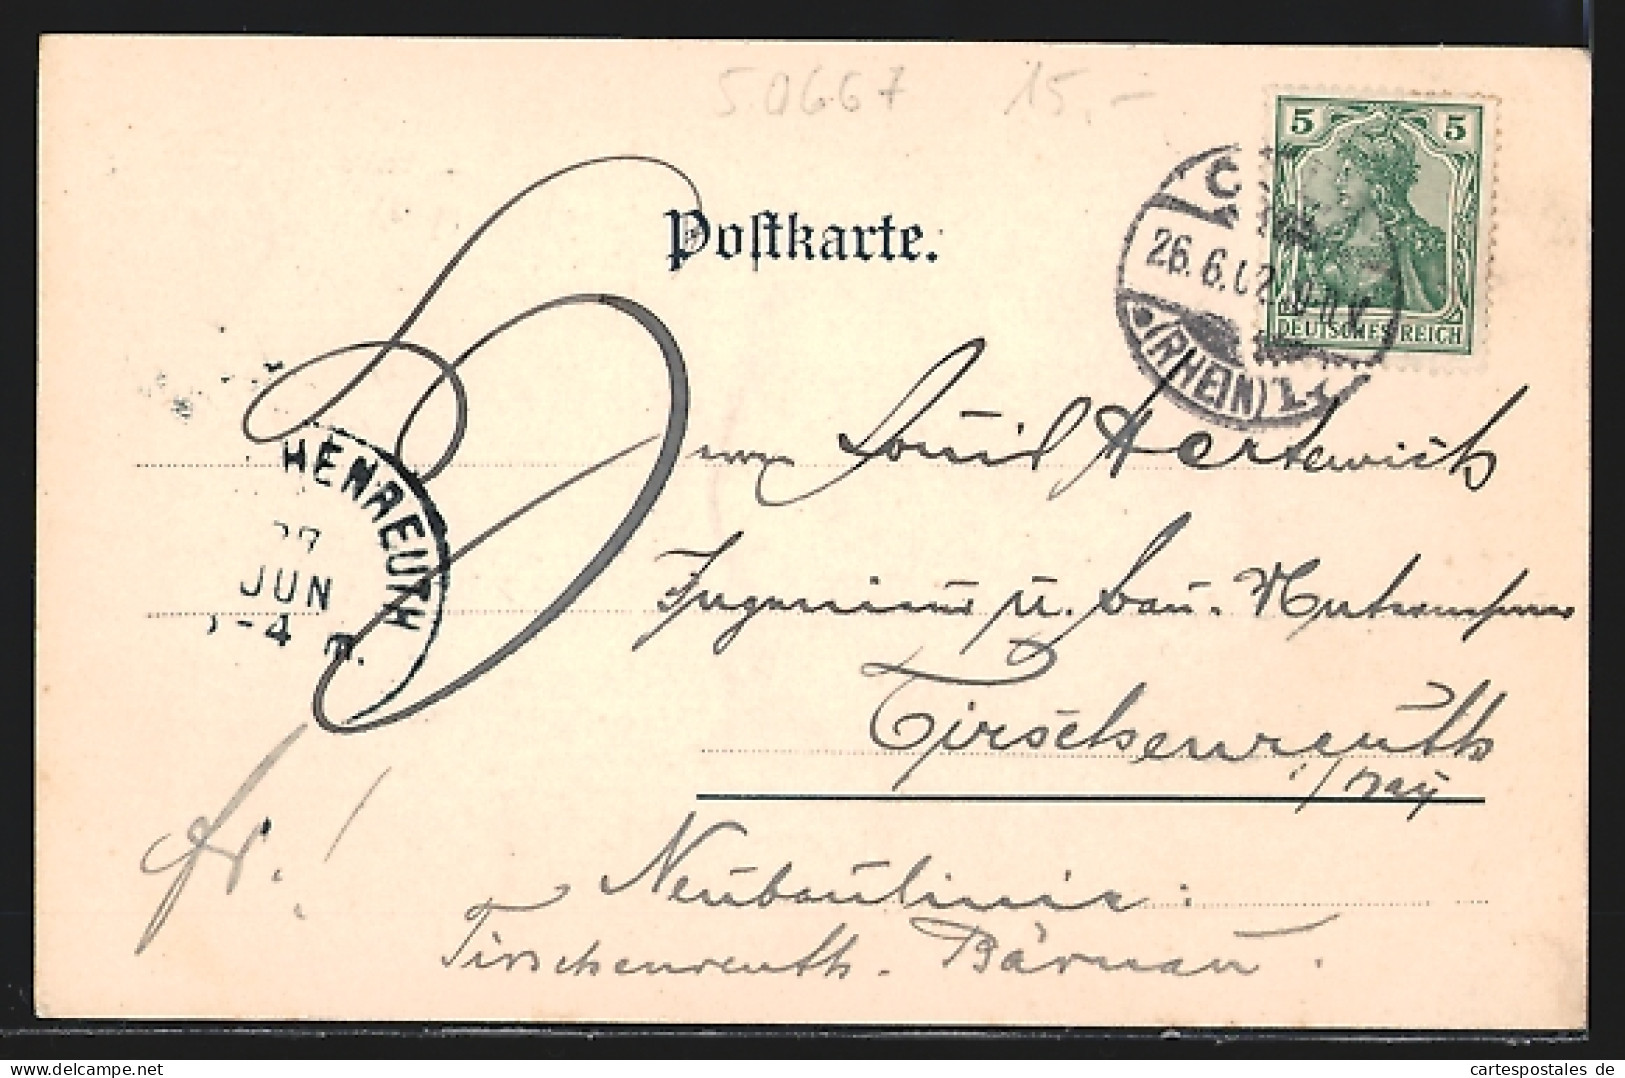 50667 15.-
Postkarte.
5 5
DEUTSCHES REICH
C
26.6.02
(RHEIN) 1
Louis Hertwich
HENREUTH
27
JUN
-4
Ingenieur u. Bau-
Tirschenreuth
i/Bay
Neubaulinie:
Tirschenreuth - Bärnau.
cartespostales de